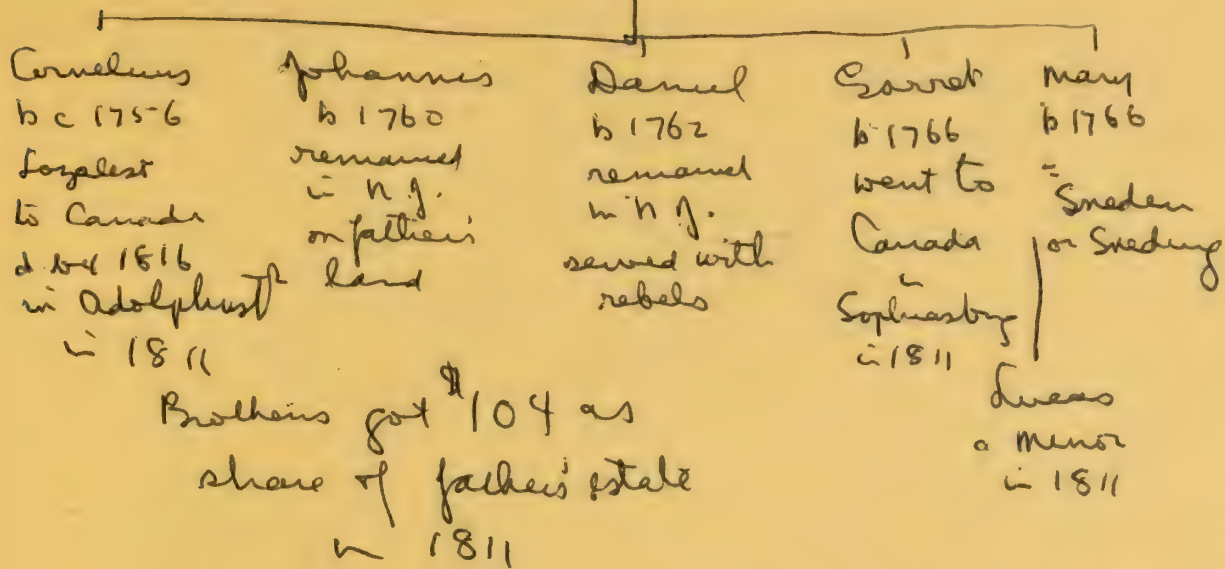 Cornelius
b c 1756
Loyalist
to Canada
d. bef 1816
in Adolphust
in 1811
Johannis
b 1760
remained
in N.J.
on father's
land
Daniel
b 1762
remained
in N.J.
served with
rebels
Garret
b 1766
went to
Canada
in
Sophiasburg
in 1811
Mary
b 1766
=
Sneden
or Sneding
Lucas
a minor
in 1811
Brothers got $104 as
share of father's estate
in 1811